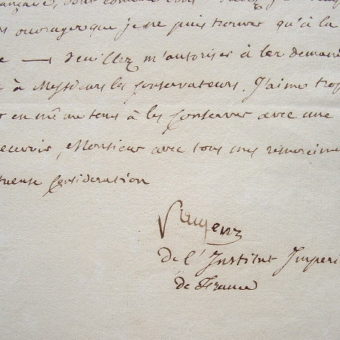 ouvrages que je ne puis trouver qu'à la
veuillez m'autoriser à les demander
à Messieurs les Conservateurs. J'aime trop
en même tems à les conserver avec une
recevoir, Monsieur avec tous mes remercime
tueuse Considération
de l'Institut Imperi
de France